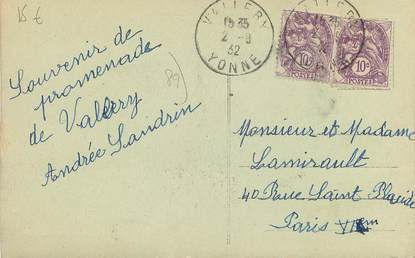 15 €
VALLERY
15 35
2 - 9
32
YONNE
10c
POSTES
10c
POSTES
Souvenir de
promenade
de Vallery
Andrée Landrin
89
Monsieur et Madame
Lamirault
40 Rue Saint Placide
Paris VI em